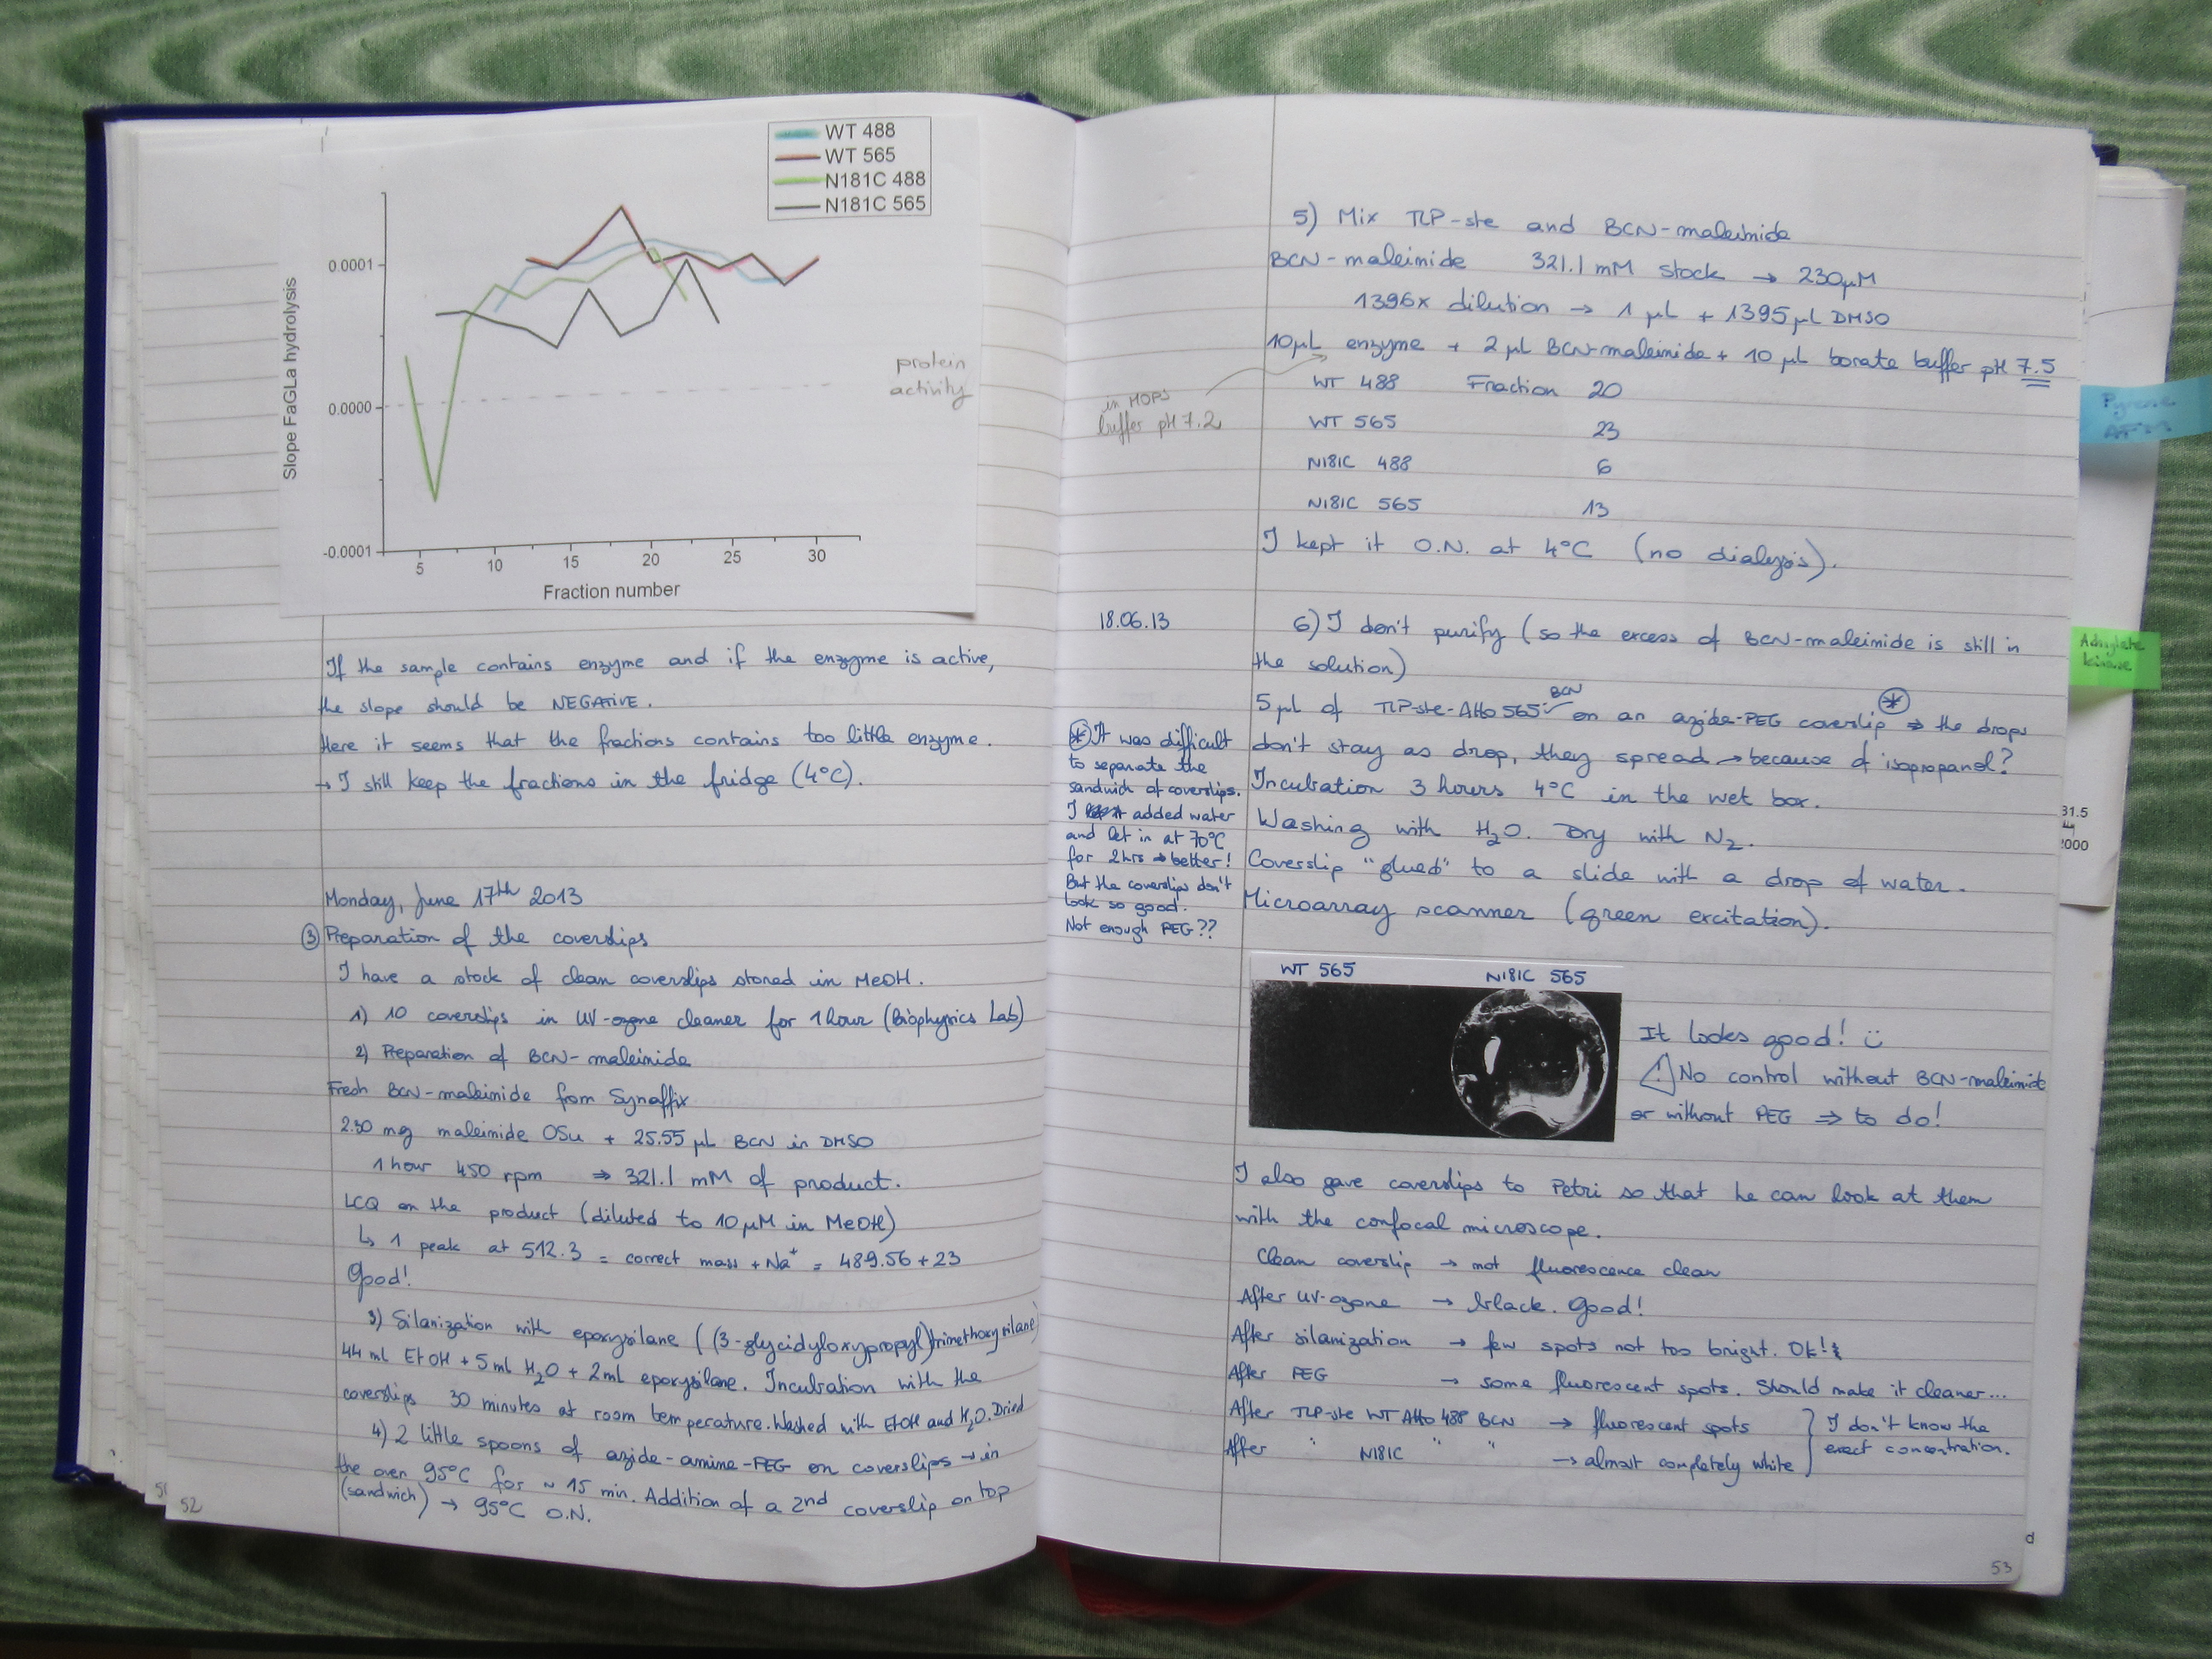 WT 488
WT 565
N181C 488
N181C 565
Slope FaGLa hydrolysis
0.0001
0.0000
-0.0001
5 10 15 20 25 30
Fraction number
protein
activity
If the sample contains enzyme and if the enzyme is active,
the slope should be NEGATIVE.
Here it seems that the fractions contains too little enzyme.
→ I still keep the fractions in the fridge (4°C).
Monday, June 17th 2013
③ Preparation of the coverslips
I have a stock of clean coverslips stored in MeOH.
1) 10 coverslips in UV-ozone cleaner for 1 hour (Biophysics Lab)
2) Preparation of BCN-maleimide
Fresh BCN-maleimide from Synaffix
2.50 mg maleimide OSu + 25.55 µL BCN in DMSO
1 hour 450 rpm ⇒ 321.1 mM of product.
LCQ on the product (diluted to 10 µM in MeOH)
↳ 1 peak at 512.3 = correct mass + Na+ = 489.56 + 23
Good!
3) Silanization with epoxysilane ((3-glycidyloxypropyl)trimethoxysilane)
44 ml EtOH + 5 ml H2O + 2 ml epoxysilane. Incubation with the
coverslips 30 minutes at room temperature. Washed with EtOH and H2O. Dried
4) 2 little spoons of azide-amine-PEG on coverslips → in
the oven 95°C for ~ 15 min. Addition of a 2nd coverslip on top
(sandwich) → 95°C O.N.
51
52
5) Mix TLP-ste and BCN-maleimide
BCN-maleimide 321.1 mM stock → 230 µM
1396x dilution → 1 µL + 1395 µL DMSO
10 µL enzyme + 2 µL BCN-maleimide + 10 µL borate buffer pH 7.5
in MOPS
buffer pH 7.2
WT 488 Fraction 20
WT 565 23
N181C 488 6
N181C 565 13
I kept it O.N. at 4°C (no dialysis).
18.06.13
6) I don't purify (so the excess of BCN-maleimide is still in
the solution)
5 µL of TLP-ste-Atto 565 BCN on an azide-PEG coverslip * ⇒ the drops
don't stay as drop, they spread → because of isopropanol?
Incubation 3 hours 4°C in the wet box.
Washing with H2O. Dry with N2.
Coverslip "glued" to a slide with a drop of water.
Microarray scanner (green excitation).
* It was difficult
to separate the
sandwich of coverslips.
I added water
and let in at 70°C
for 2 hrs ⇒ better!
But the coverslips don't
look so good.
Not enough PEG??
WT 565 N181C 565
It looks good! ü
! No control without BCN-maleimide
or without PEG ⇒ to do!
I also gave coverslips to Petri so that he can look at them
with the confocal microscope.
Clean coverslip → not fluorescence clean
After UV-ozone → black. Good!
After silanization → few spots not too bright. Ok!
After PEG → some fluorescent spots. Should make it cleaner...
After TLP-ste WT Atto 488 BCN → fluorescent spots
After " N181C " " → almost completely white
I don't know the
exact concentration.
53
Pyrene
AFM
Adenylate
kinase
31.5
2000
d